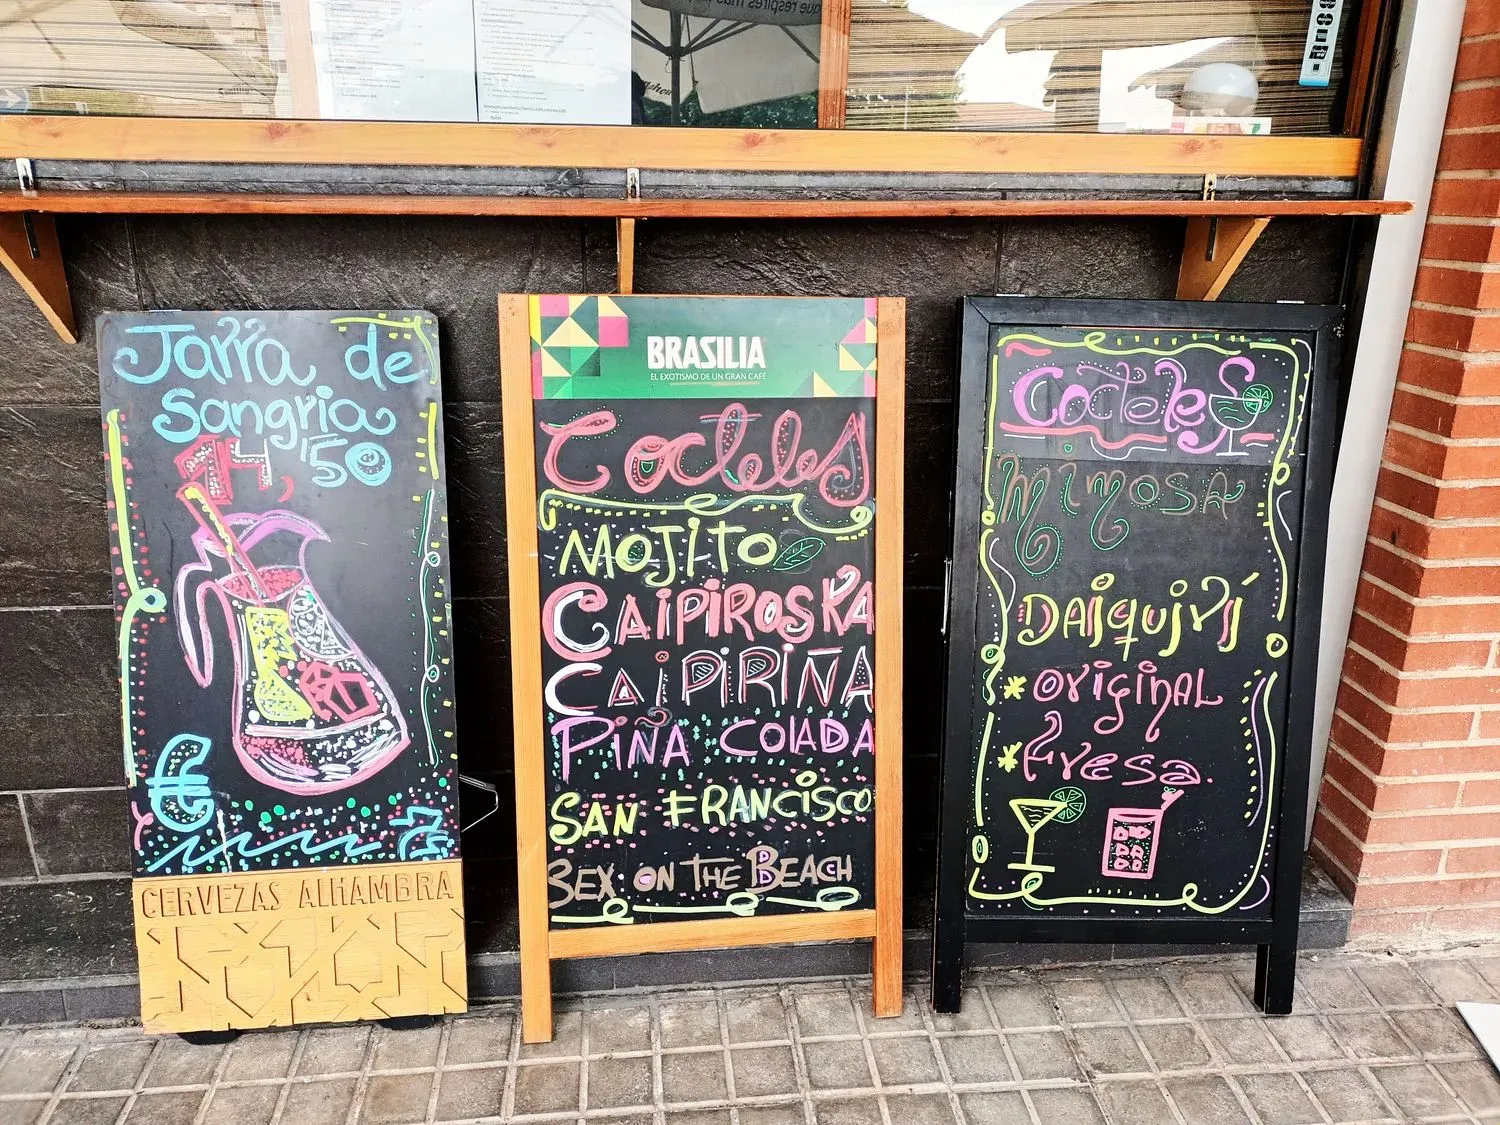 Jarra de
Sangria
14,'50
€
CERVEZAS ALHAMBRA
BRASILIA
EL EXOTISMO DE UN GRAN CAFÉ
Cocteles
MOJITO
CAIPIROSKA
CAIPIRIÑA
PIÑA COLADA
SAN FRANCISCO
SEX ON THE BEACH
Cocteles
MIMOSA
DAIQUIRÍ
* ORIGINAL
* Fresa.